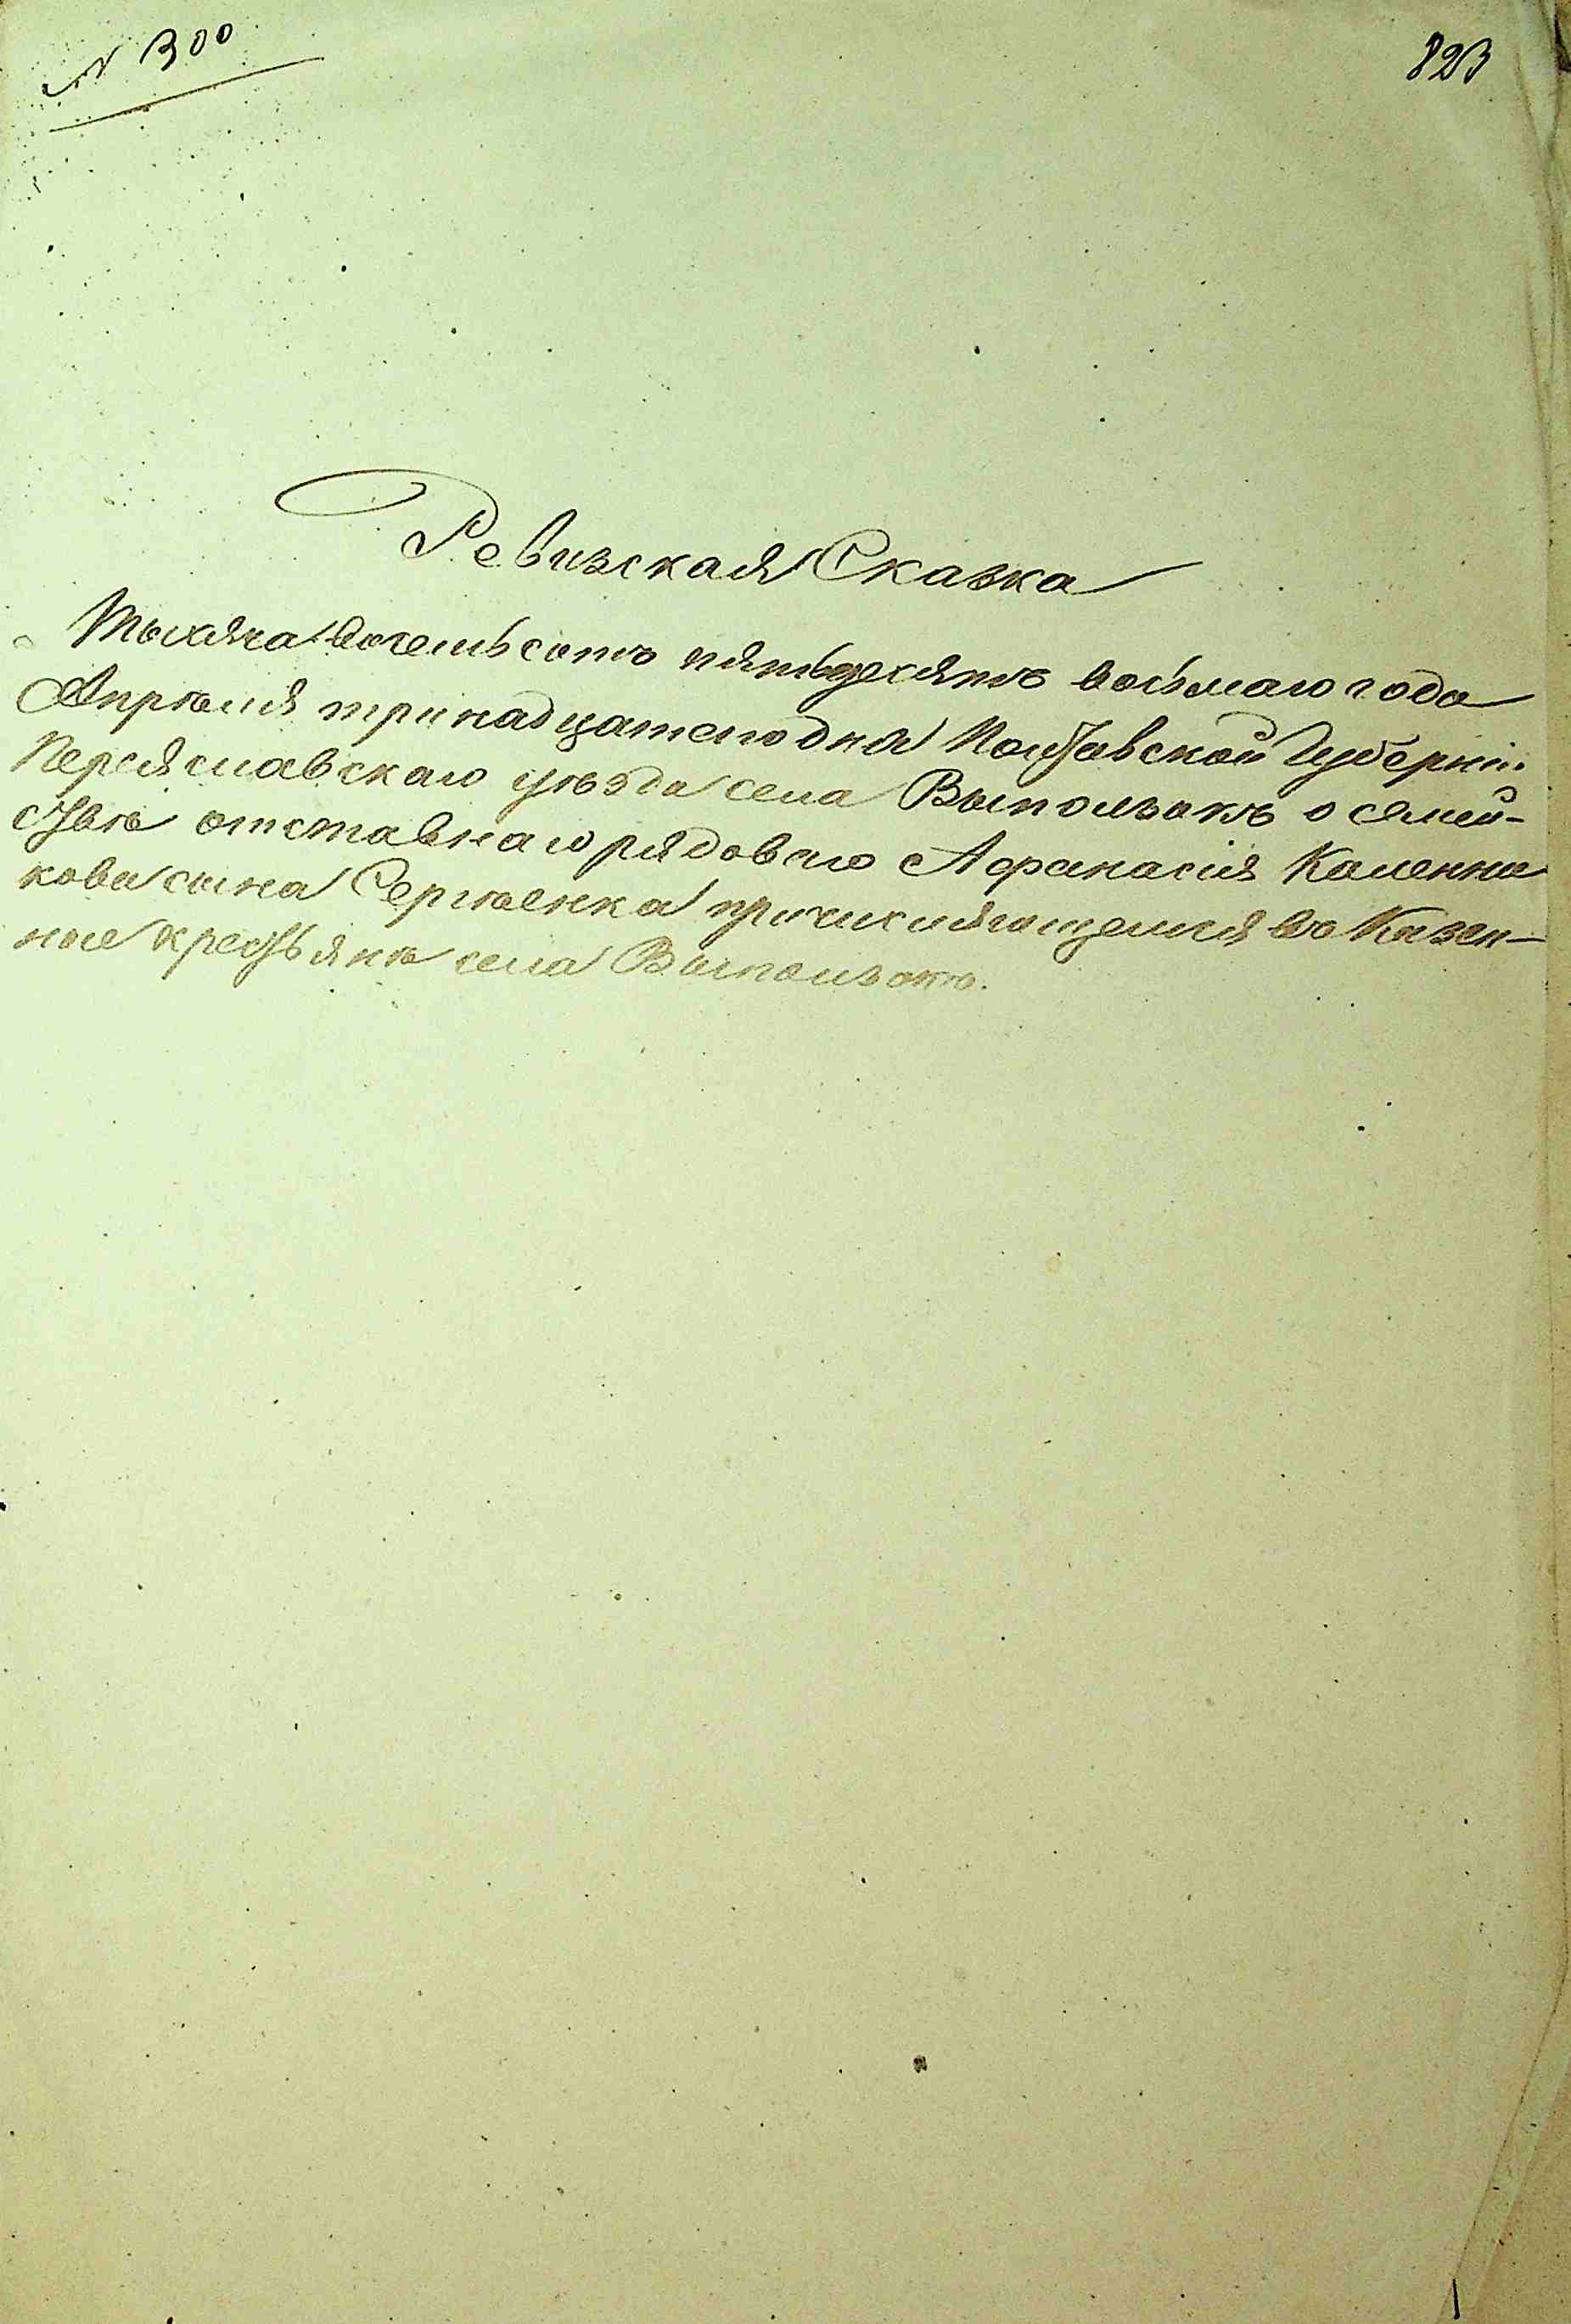 № 300
823
Ревизская Сказка
Тысяча восемьсотъ пятьдесятъ восьмаго года
Апрѣля тринадцатого дня Полтавской Губерніи
Переяславскаго уѣзда села Выползокъ о семей-
ствѣ отставнаго рядоваго Афанасія Каленни
кова сына Сергѣенка причисляющемся въ Казен-
ные крестьяне села Выползокъ.